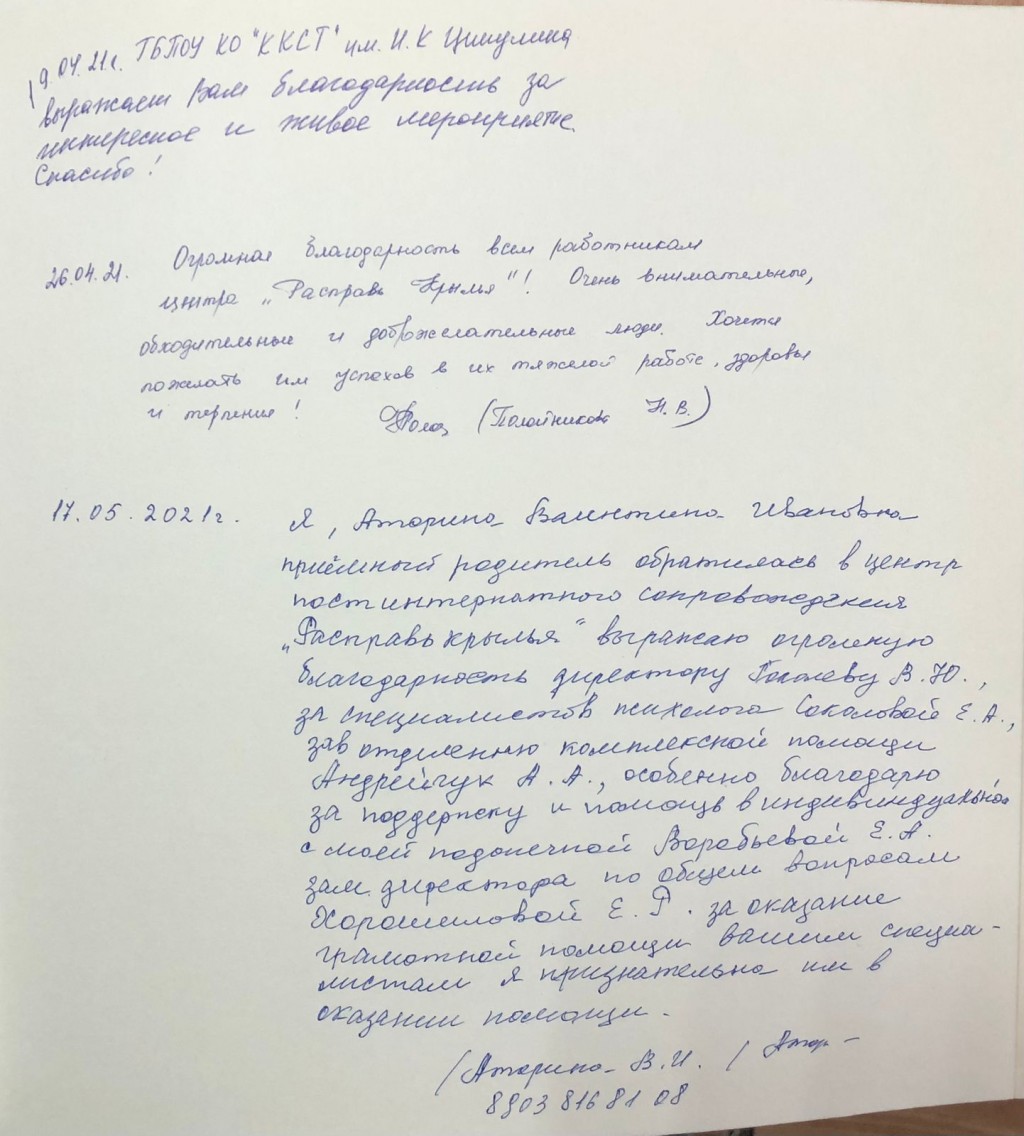 19.04.21г. ГБПОУ КО "ККСТ" им. И.К Ципулина
выражает Вам благодарность за
интересное и живое мероприятие.
Спасибо!
26.04.21. Огромная благодарность всем работникам
центра „Расправь Крылья"! Очень внимательные,
обходительные и доброжелательные люди. Хочется
пожелать им успехов в их тяжелой работе, здоровья
и терпения! (Полойникова Н.В.)
17.05.2021г. Я, Аторина Валентина Ивановна
приёмный родитель обратилась в центр
постинтернатного сопровождения
„Расправь крылья" выражаю огромную
благодарность директору Гоголеву В.Ю.,
за специалистов психолога Соколовой Е.А.,
зав отделению комплексной помощи
Андрейчук А.А., особенно благодарю
за поддержку и помощь в индивиндуально
с моей подопечной Воробьевой Е.А.
зам. директора по общем вопросам
Хорошиловой Е.Р. за оказание
грамотной помощи вашим специа-
листам я признательна им в
оказании помощи.
/Аторина В.И. /
8903 816 81 08